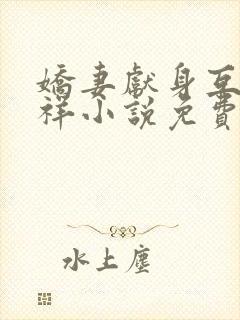 嬌妻獻身互
祥小說免費
水上塵